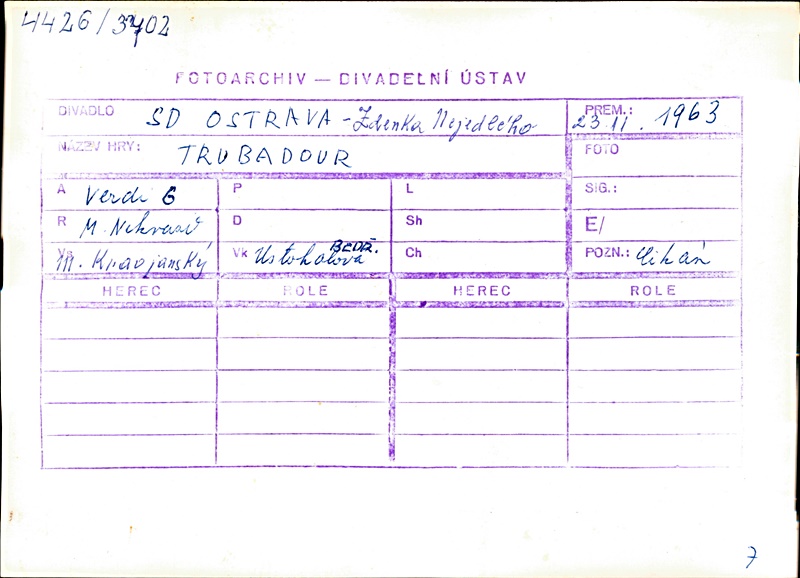 4426/3402
FOTOARCHIV — DIVADELNÍ ÚSTAV
DIVADLO SD OSTRAVA - Zdenka Nejedlého
PREM.: 23 11. 1963
NÁZEV HRY: TRUBADOUR
FOTO
A Verdi G
P
L
SIG.:
R M. Nekvasil
D
Sh
E/
M. Kravjanský
Vk BEDŘ.
Ch
POZN.:
HEREC ROLE HEREC ROLE
7